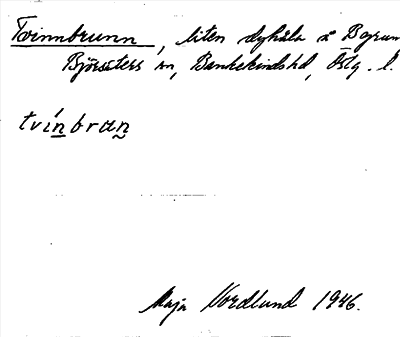 Tvinnbrunn, liten dyhåla å Bogrum
Björsäters sn, Bankekinds hd, Östg. l.
tvínbran
Maja Nordlund 1946.